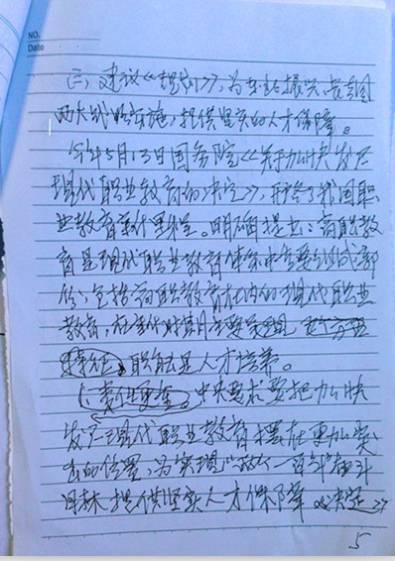 NO.
Date
三、建议《规划》,为东北振兴、
两大战略实施,提供坚实的人才保障。
今年5月13日国务院《关于加快发展
现代职业教育的决定》,
业教育。明确提出:高职教
育是现代职业教育体系中重要组成部
份,包括高职教育在内的现代职业
教育,
职能是人才培养。
中央要求要把加快
发展现代职业教育摆在更加突
出的位置,为实现“两个一百年”奋斗
目标提供坚实人才保障《决定》
5